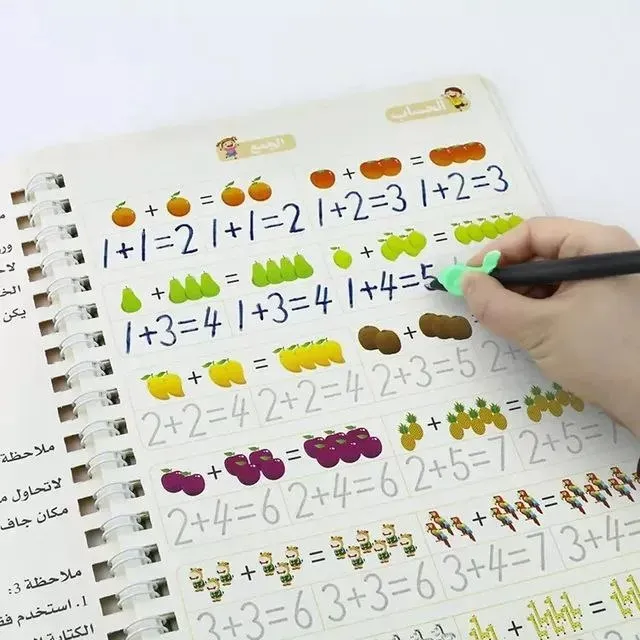 الحساب
الجمع
+ = + =
1+1=2 1+1=2 1+2=3 1+2=3
+ = + =
1+3=4 1+3=4 1+4=5
+ = + =
2+2=4 2+2=4 2+3=5 2+
+ = + =
2+4=6 2+4=6 2+5=7 2+5=7
+ = + =
3+3=6 3+3=6 3+4=7 3+4=
+
يكن
ملاحظة
لاتحاول
مكان جاف
ملاحظة 3:
1. استخدم فقط
الكتابة